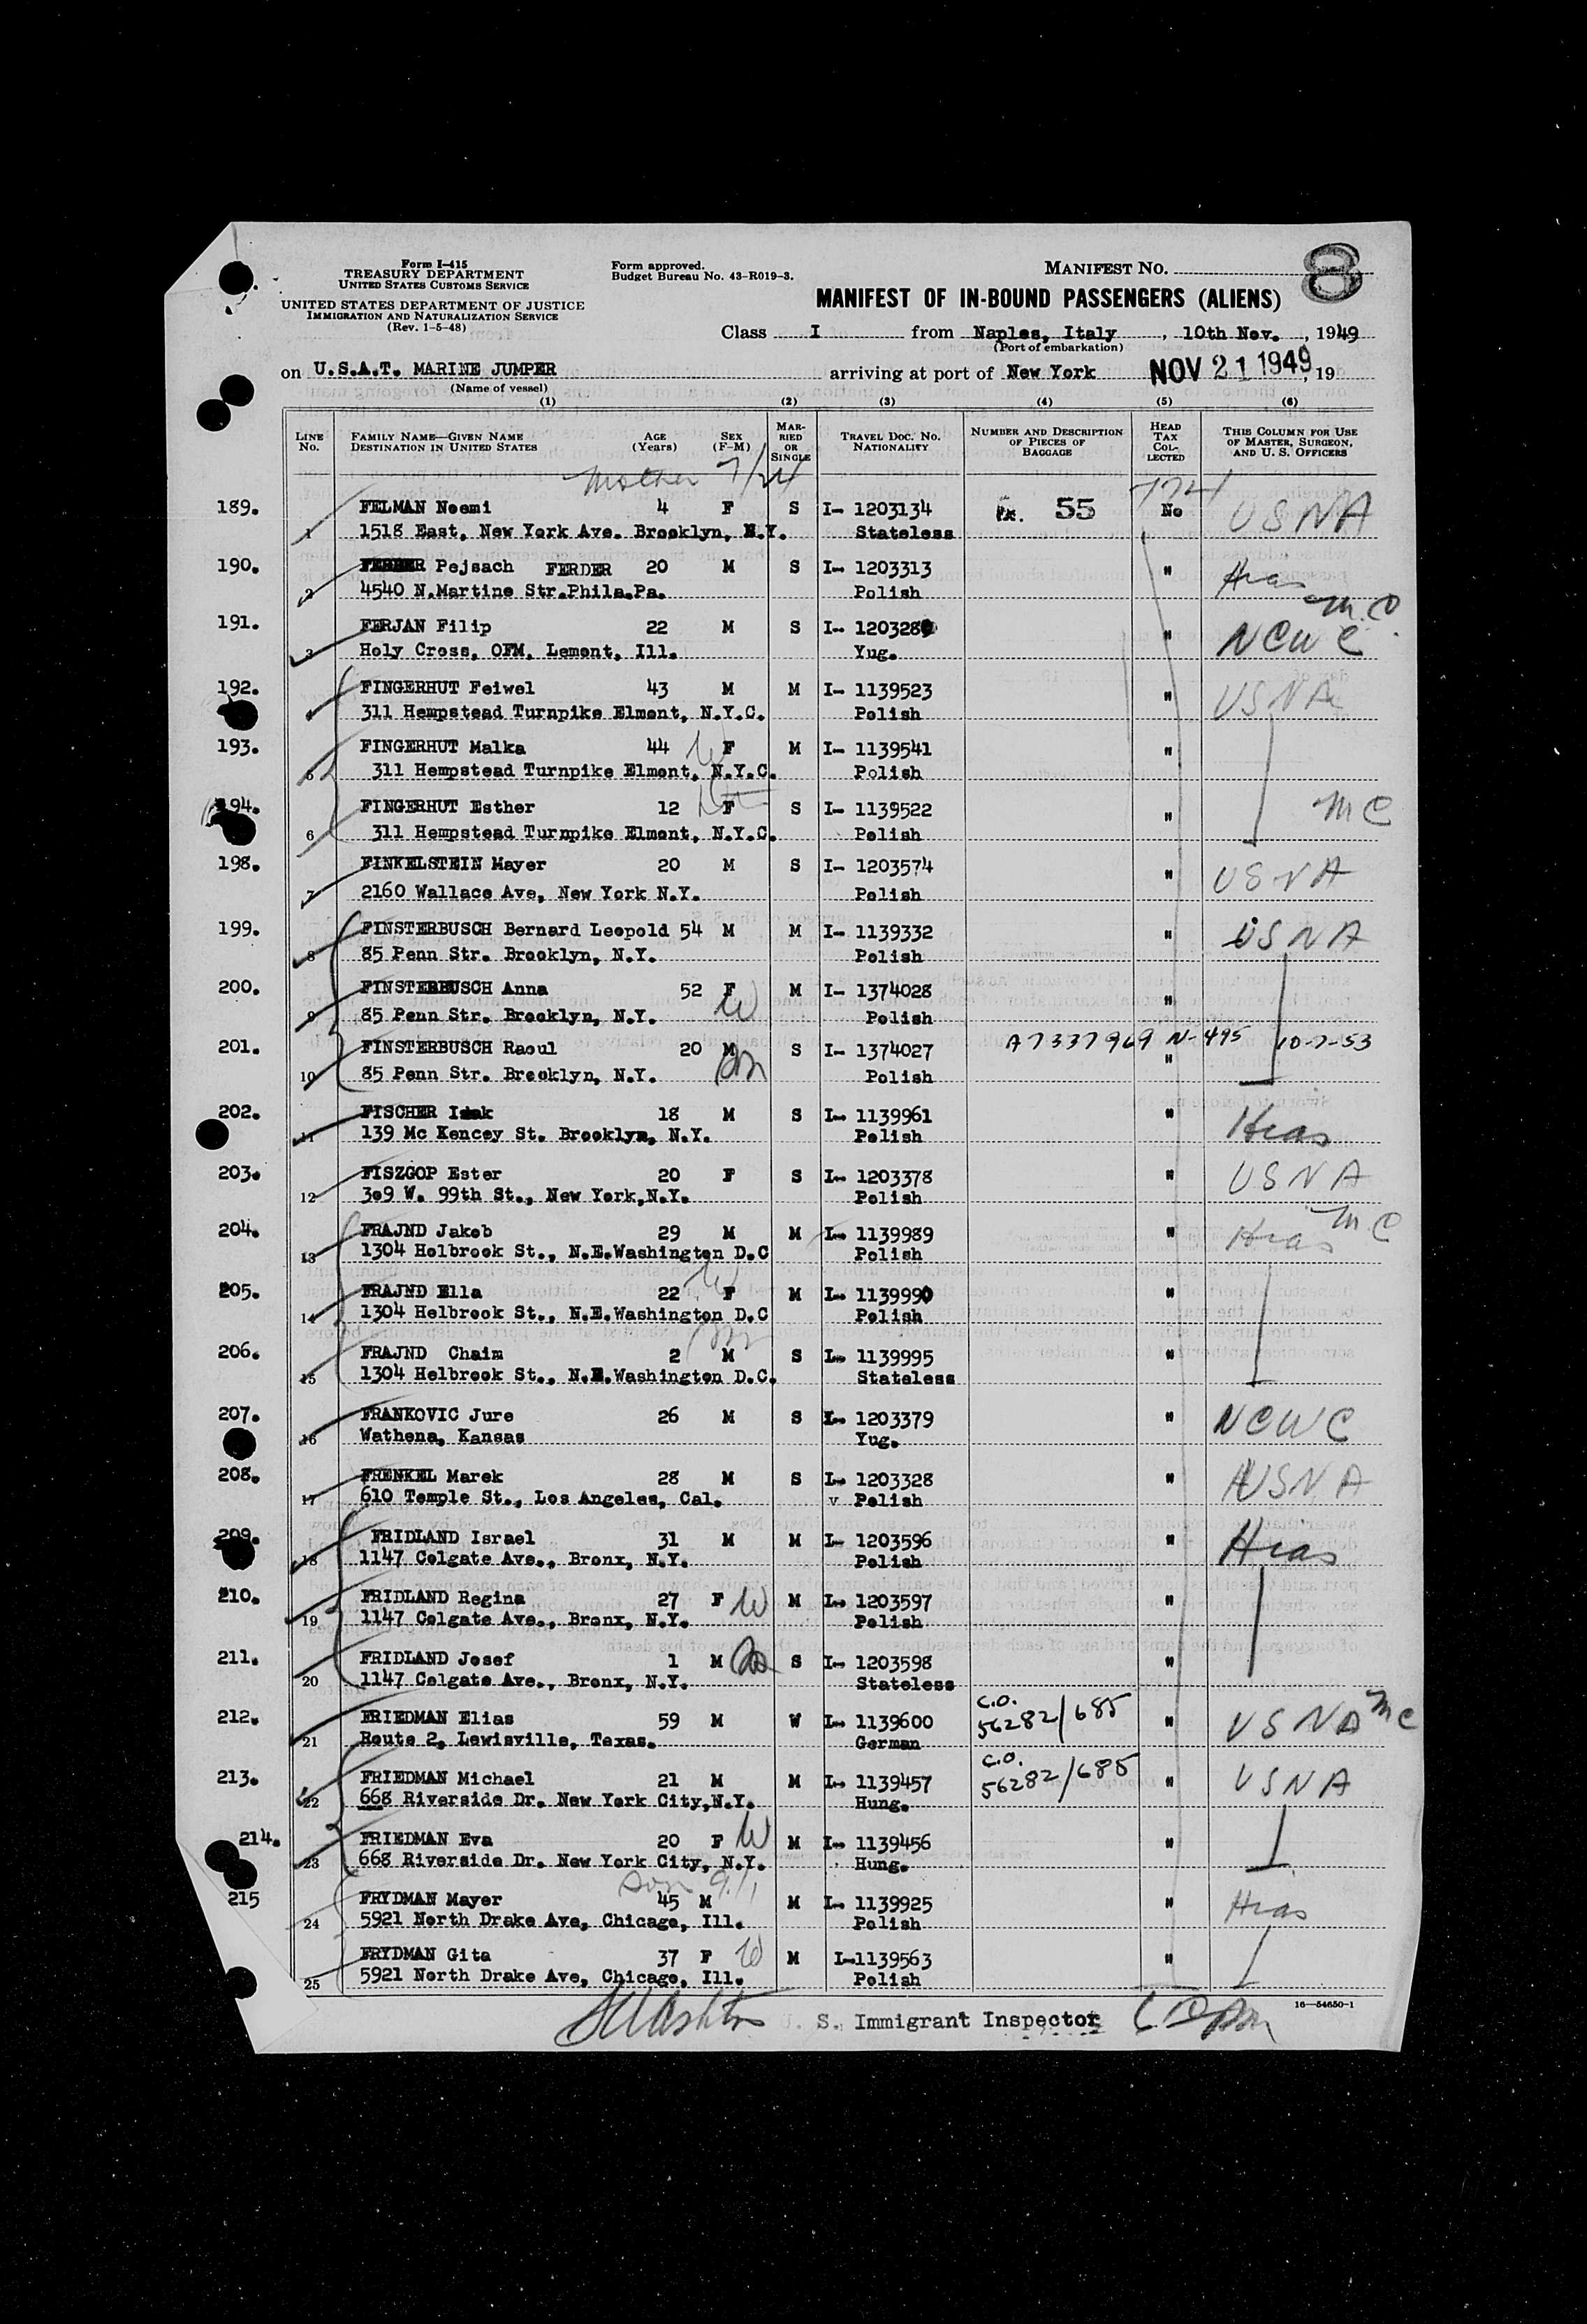 Form I-415
TREASURY DEPARTMENT
UNITED STATES CUSTOMS SERVICE
UNITED STATES DEPARTMENT OF JUSTICE
IMMIGRATION AND NATURALIZATION SERVICE
(Rev. 1-5-48)
Form approved.
Budget Bureau No. 43-R019-3.
MANIFEST NO.
8
MANIFEST OF IN-BOUND PASSENGERS (ALIENS)
Class I from Naples, Italy, 10th Nov., 1949
(Port of embarkation)
on U.S.A.T. MARINE JUMPER arriving at port of New York NOV 21 1949, 19
(Name of vessel)
(1) (2) (3) (4) (5) (6)
LINE NO. FAMILY NAME—GIVEN NAME DESTINATION IN UNITED STATES AGE (Years) SEX (F-M) MARRIED OR SINGLE TRAVEL DOC. NO. NATIONALITY NUMBER AND DESCRIPTION OF PIECES OF BAGGAGE HEAD TAX COLLECTED THIS COLUMN FOR USE OF MASTER, SURGEON, AND U. S. OFFICERS
Mother 7/24
189. FELMAN Noemi 4 F S I- 1203134 55 No USNA
1 1518 East, New York Ave. Brooklyn, N.Y. Stateless
190. Pejsach FERDER 20 M S I- 1203313 " Hias
2 4540 N.Martine Str.Phila.Pa. Polish
M.C.
191. FERJAN Filip 22 M S I- 120328 " NCWC
3 Holy Cross, OFM, Lemont, Ill. Yug.
192. FINGERHUT Feiwel 43 M M I- 1139523 " USNA
4 311 Hempstead Turnpike Elmont, N.Y.C. Polish
193. FINGERHUT Malka 44 W F M I- 1139541 "
5 311 Hempstead Turnpike Elmont, N.Y.C. Polish
194. FINGERHUT Esther 12 F S I- 1139522 " MC
6 311 Hempstead Turnpike Elmont, N.Y.C. Polish
198. FINKELSTEIN Mayer 20 M S I- 1203574 " USNA
7 2160 Wallace Ave, New York N.Y. Polish
199. FINSTERBUSCH Bernard Leopold 54 M M I- 1139332 " USNA
8 85 Penn Str. Brooklyn, N.Y. Polish
200. FINSTERBUSCH Anna 52 F W M I- 1374028 "
9 85 Penn Str. Brooklyn, N.Y. Polish
A7337969 N-495 10-7-53
201. FINSTERBUSCH Raoul 20 M Son S I- 1374027 "
10 85 Penn Str. Brooklyn, N.Y. Polish
202. FISCHER Isak 18 M S I- 1139961 " Hias
11 139 Mc Kencey St. Brooklyn, N.Y. Polish
203. FISZGOP Ester 20 F S I- 1203378 " USNA
12 309 W. 99th St., New York,N.Y. Polish
204. FRAJND Jakob 29 M M I- 1139989 " Hias M.C
13 1304 Holbrook St., N.E.Washington D.C Polish
205. FRAJND Ella 22 W F M I- 1139990 "
14 1304 Holbrook St., N.E.Washington D.C Polish
206. FRAJND Chaim 2 Son M S I- 1139995 "
15 1304 Holbrook St., N.E.Washington D.C. Stateless
207. FRANKOVIC Jure 26 M S I- 1203379 " NCWC
16 Wathena, Kansas Yug.
208. FRENKEL Marek 28 M S I- 1203328 " USNA
17 610 Temple St., Los Angeles, Cal. v Polish
209. FRIDLAND Israel 31 M M I- 1203596 " Hias
18 1147 Colgate Ave., Bronx, N.Y. Polish
210. FRIDLAND Regina 27 F W M I- 1203597 "
19 1147 Colgate Ave., Bronx, N.Y. Polish
211. FRIDLAND Josef 1 M S I- 1203598 "
20 1147 Colgate Ave., Bronx, N.Y. Stateless
212. FRIEDMAN Elias 59 M W I- 1139600 C.O. 56282/685 " USNA MC
21 Route 2, Lewisville, Texas. German
213. FRIEDMAN Michael 21 M M I- 1139457 C.O. 56282/685 " USNA
22 668 Riverside Dr. New York City,N.Y. Hung.
214. FRIEDMAN Eva 20 F W M I- 1139456 "
23 668 Riverside Dr. New York City, N.Y. Hung.
Son 9/1
215 FRYDMAN Mayer 45 M M I- 1139925 " Hias
24 5921 North Drake Ave, Chicago, Ill. Polish
FRYDMAN Gita 37 F W M I-1139563 "
25 5921 North Drake Ave, Chicago, Ill. Polish
16—54650-1
S. Immigrant Inspector